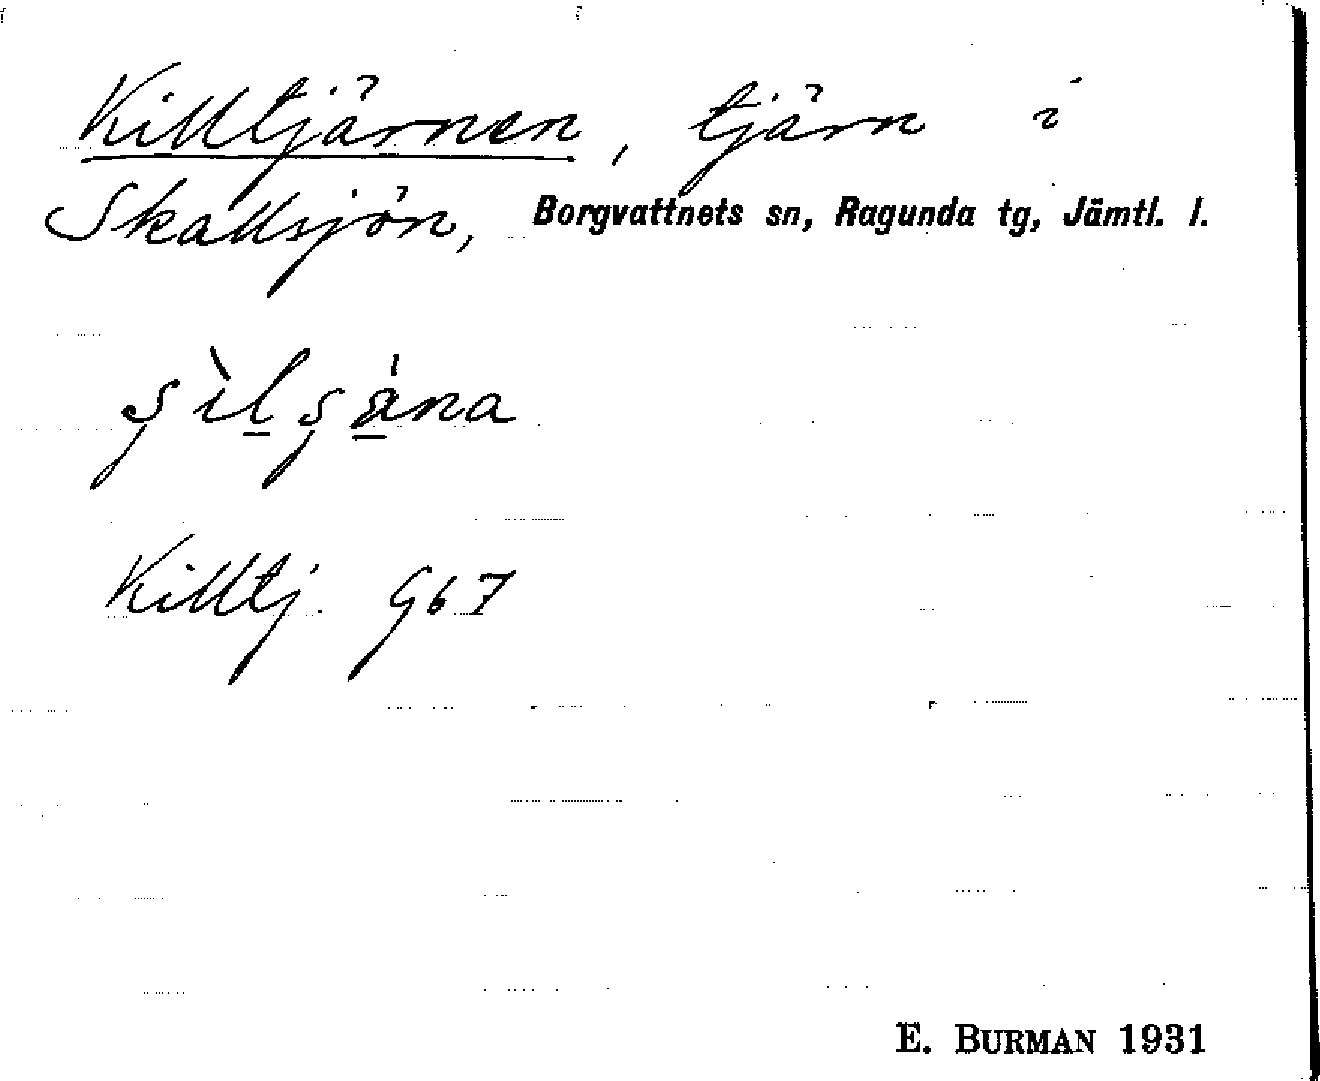 Killtjärnen, tjärn i
Skallsjön, Borgvattnets sn, Ragunda tg, Jämtl. l.
Killtj. G67
E. BURMAN 1931